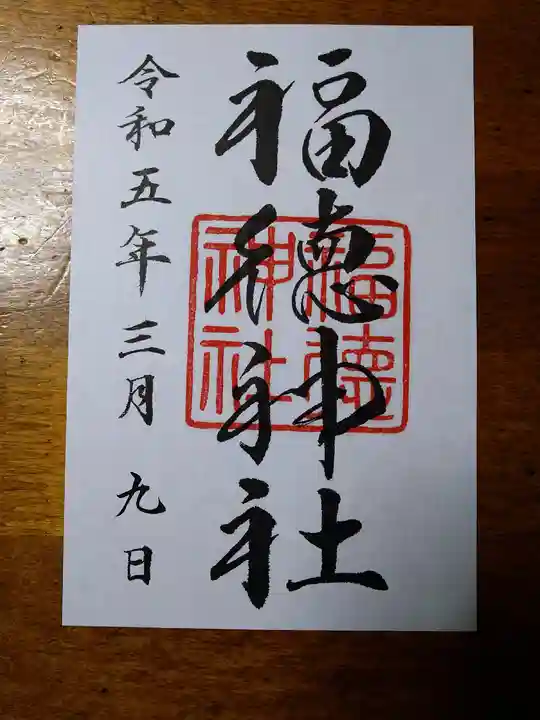 福德神社
福德
神社
令和五年三月九日